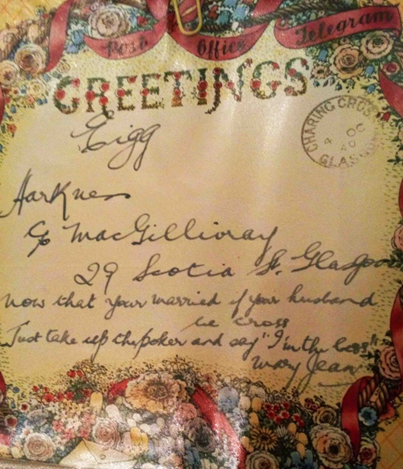 Post Office Telegram
GREETINGS
CHARING CROSS
4 OC
40
GLASGOW
Eigg
Harkness
c/o MacGillivray
29 Scotia St. Glasgow
Now that your married if your husband
be cross
Just take up the poker and say "I'm the boss"
Mary Jean